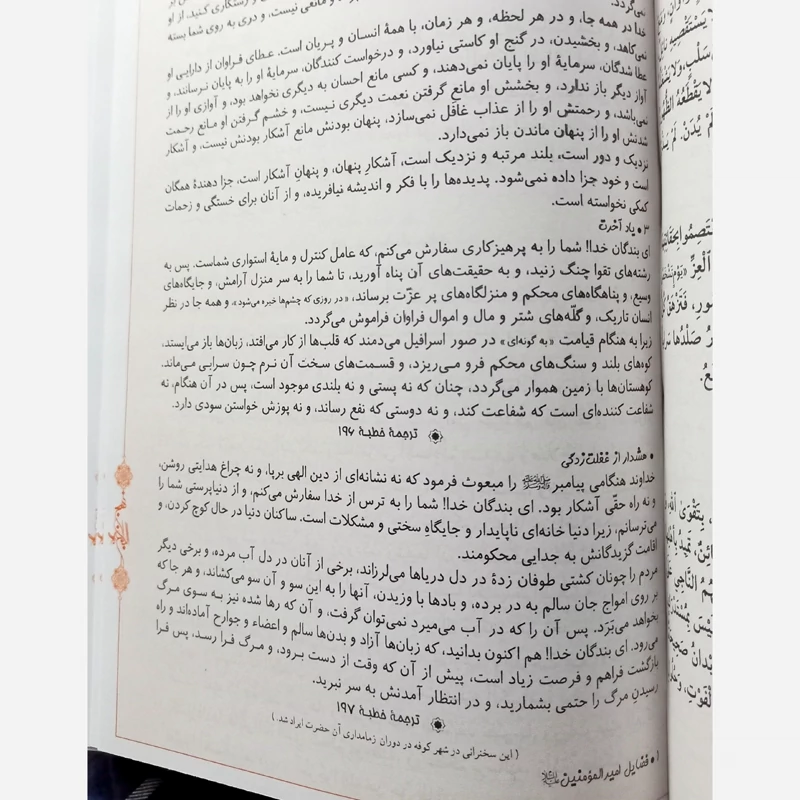 نمی‌گردد.
خدا در همه جا، و در هر لحظه، و هر زمان، با همهٔ انسان و پریان است. عطای فراوان از دارایی او
نمی‌کاهد، و بخشیدن، در گنج او کاستی نیاورد، و درخواست کنندگان، سرمایهٔ او را به پایان نرسانند، و
عطا شدگان، سرمایهٔ او را پایان نمی‌دهند، و کسی مانع احسان به دیگری نخواهد بود، و آوازی او را از
آواز دیگر باز ندارد، و بخشش او مانع گرفتن نعمت دیگری نیست، و خشم گرفتن او مانع رحمت
نمی‌باشد، و رحمتش او را از عذاب غافل نمی‌سازد، پنهان بودنش مانع آشکار بودنش نیست، و آشکار
شدنش او را از پنهان ماندن باز نمی‌دارد.
نزدیک و دور است، بلند مرتبه و نزدیک است، آشکارِ پنهان، و پنهانِ آشکار است، جزا دهندهٔ همگان
است و خود جزا داده نمی‌شود. پدیده‌ها را با فکر و اندیشه نیافریده، و از آنان برای خستگی و زحمات
کمکی نخواسته است.
۳ • یاد آخرت
ای بندگان خدا! شما را به پرهیزکاری سفارش می‌کنم، که عامل کنترل و مایهٔ استواری شماست. پس به
رشته‌های تقوا چنگ زنید، و به حقیقت‌های آن پناه آورید، تا شما را به سر منزل آرامش، و جایگاه‌های
وسیع، و پناهگاه‌های محکم و منزلگاه‌های پر عزّت برساند، «در روزی که چشم‌ها خیره می‌شود»، و همه جا در نظر
انسان تاریک، و گلّه‌های شتر و مال و اموال فراوان فراموش می‌گردد.
زیرا به هنگام قیامت «به گونه‌ای» در صور اسرافیل می‌دمند که قلب‌ها از کار می‌افتد، زبان‌ها باز می‌ایستد،
کوه‌های بلند و سنگ‌های محکم فرو می‌ریزد، و قسمت‌های سخت آن نرم چون سرابی می‌ماند.
کوهستان‌ها با زمین هموار می‌گردد، چنان که نه پستی و نه بلندی موجود است، پس در آن هنگام، نه
شفاعت کننده‌ای است که شفاعت کند، و نه دوستی که نفع رساند، و نه پوزش خواستن سودی دارد.
ترجمهٔ خطبهٔ ۱۹۶
• هشدار از غفلت‌زدگی
خداوند هنگامی پیامبر ﷺ را مبعوث فرمود که نه نشانه‌ای از دین الهی برپا، و نه چراغ هدایتی روشن،
و نه راه حقّی آشکار بود. ای بندگان خدا! شما را به ترس از خدا سفارش می‌کنم، و از دنیاپرستی شما را
می‌ترسانم، زیرا دنیا خانه‌ای ناپایدار و جایگاهِ سختی و مشکلات است. ساکنان دنیا در حال کوچ کردن، و
اقامت گزیدگانش به جدایی محکومند.
مردم را چونان کشتی طوفان زدهٔ در دل دریاها می‌لرزاند، برخی از آنان در دل آب مرده، و برخی دیگر
بر روی امواج جان سالم به در برده، و بادها با وزیدن، آنها را به این سو و آن سو می‌کشاند، و هر جا که
بخواهد می‌بَرَد. پس آن را که در آب می‌میرد نمی‌توان گرفت، و آن که رها شده نیز به سوی مرگ
می‌رود. ای بندگان خدا! هم اکنون بدانید، که زبان‌ها آزاد و بدن‌ها سالم و اعضاء و جوارح آماده‌اند و راه
بازگشت فراهم و فرصت زیاد است، پیش از آن که وقت از دست برود، و مرگ فرا رسد، پس فرا
رسیدنِ مرگ را حتمی بشمارید، و در انتظار آمدنش به سر نبرید.
ترجمهٔ خطبهٔ ۱۹۷
( این سخنرانی در شهر کوفه در دوران زمامداری آن حضرت ایراد شد. )
۱ • فضایل امیرالمؤمنین